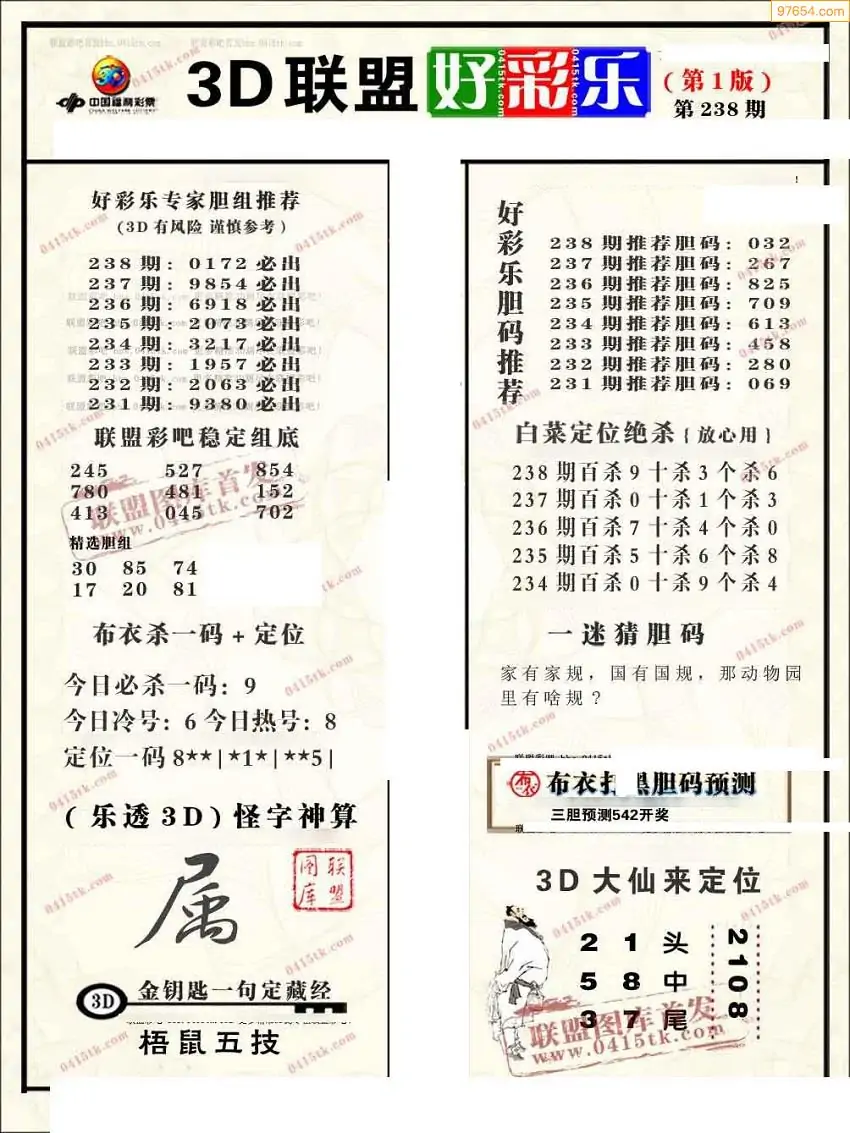 97654.com
3D联盟好彩乐
(第1版)
第238期
中国福利彩票
CHINA WELFARE LOTTERY
好彩乐专家胆组推荐
(3D有风险 谨慎参考)
238期: 0172必出
237期: 9854必出
236期: 6918必出
235期: 2073必出
234期: 3217必出
233期: 1957必出
232期: 2063必出
231期: 9380必出
联盟彩吧稳定组底
245 527 854
780 481 152
413 045 702
联盟图库首发
www.0415tk.com
精选胆组
30 85 74
17 20 81
布衣杀一码+定位
今日必杀一码: 9
今日冷号: 6 今日热号: 8
定位一码 8**|*1*|**5|
(乐透3D)怪字神算
属
联盟图库
3D 金钥匙一句定藏经
梧鼠五技
好彩乐胆码推荐
238期推荐胆码: 032
237期推荐胆码: 267
236期推荐胆码: 825
235期推荐胆码: 709
234期推荐胆码: 613
233期推荐胆码: 458
232期推荐胆码: 280
231期推荐胆码: 069
白菜定位绝杀{放心用}
238期百杀9十杀3个杀6
237期百杀0十杀1个杀3
236期百杀7十杀4个杀0
235期百杀5十杀6个杀8
234期百杀0十杀9个杀4
一迷猜胆码
家有家规，国有国规，那动物园
里有啥规?
布衣 布衣扌 黑胆码预测
三胆预测542开奖
3D大仙来定位
2 1 头
5 8 中
3 7 尾
2108
联盟图库首发
www.0415tk.com
0415tk.com